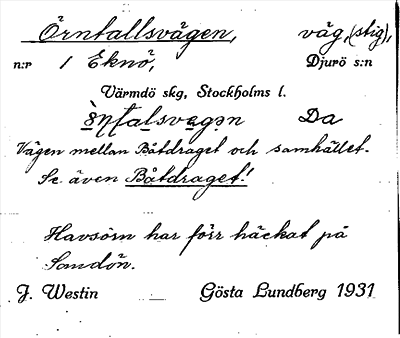 Örnfallsvägen, väg, (stig),
n:r 1 Eknö, Djurö s:n
Värmdö skg, Stockholms l.
Da
Vägen mellan Båtdraget och samhället.
Se även Båtdraget!
Havsörn har förr häckat på
Sandön.
J. Westin — Gösta Lundberg 1931